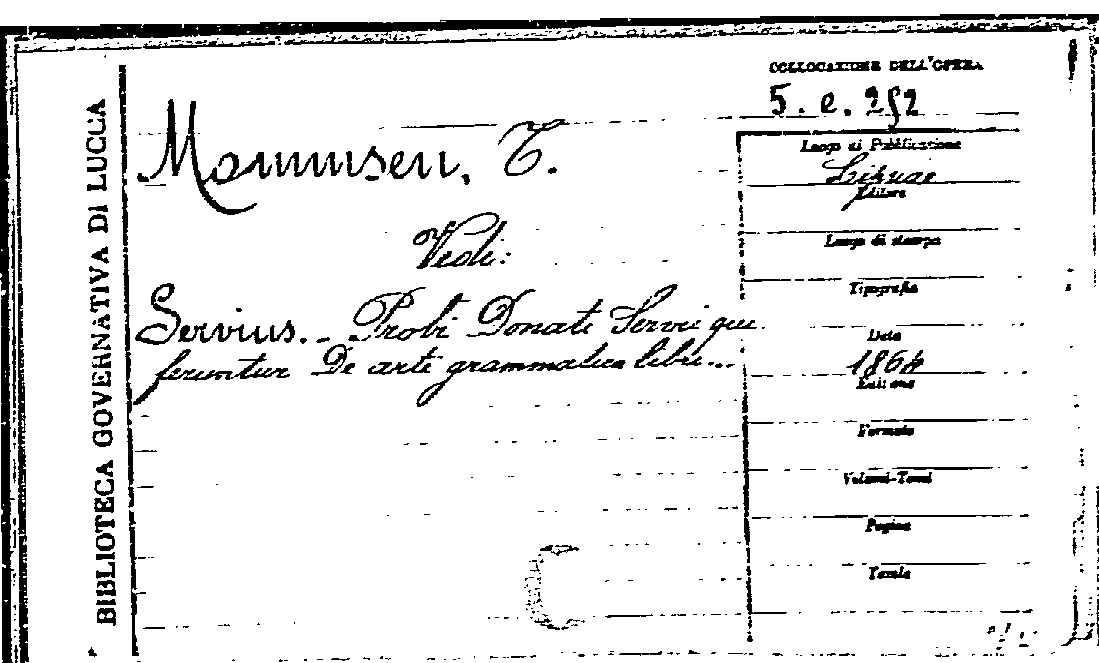 BIBLIOTECA GOVERNATIVA DI LUCCA
COLLOCAZIONE DELL'OPERA
5. e. 252
Mommsen, T.
Vedi:
Servius. - Probi Donati Servii qui
feruntur De arte grammatica libri...
Luogo di Pubblicazione
Lipsiae
Editore
Luogo di stampa
Tipografia
Data
1864
Edizione
Formato
Volumi-Tomi
Pagine
Tavole